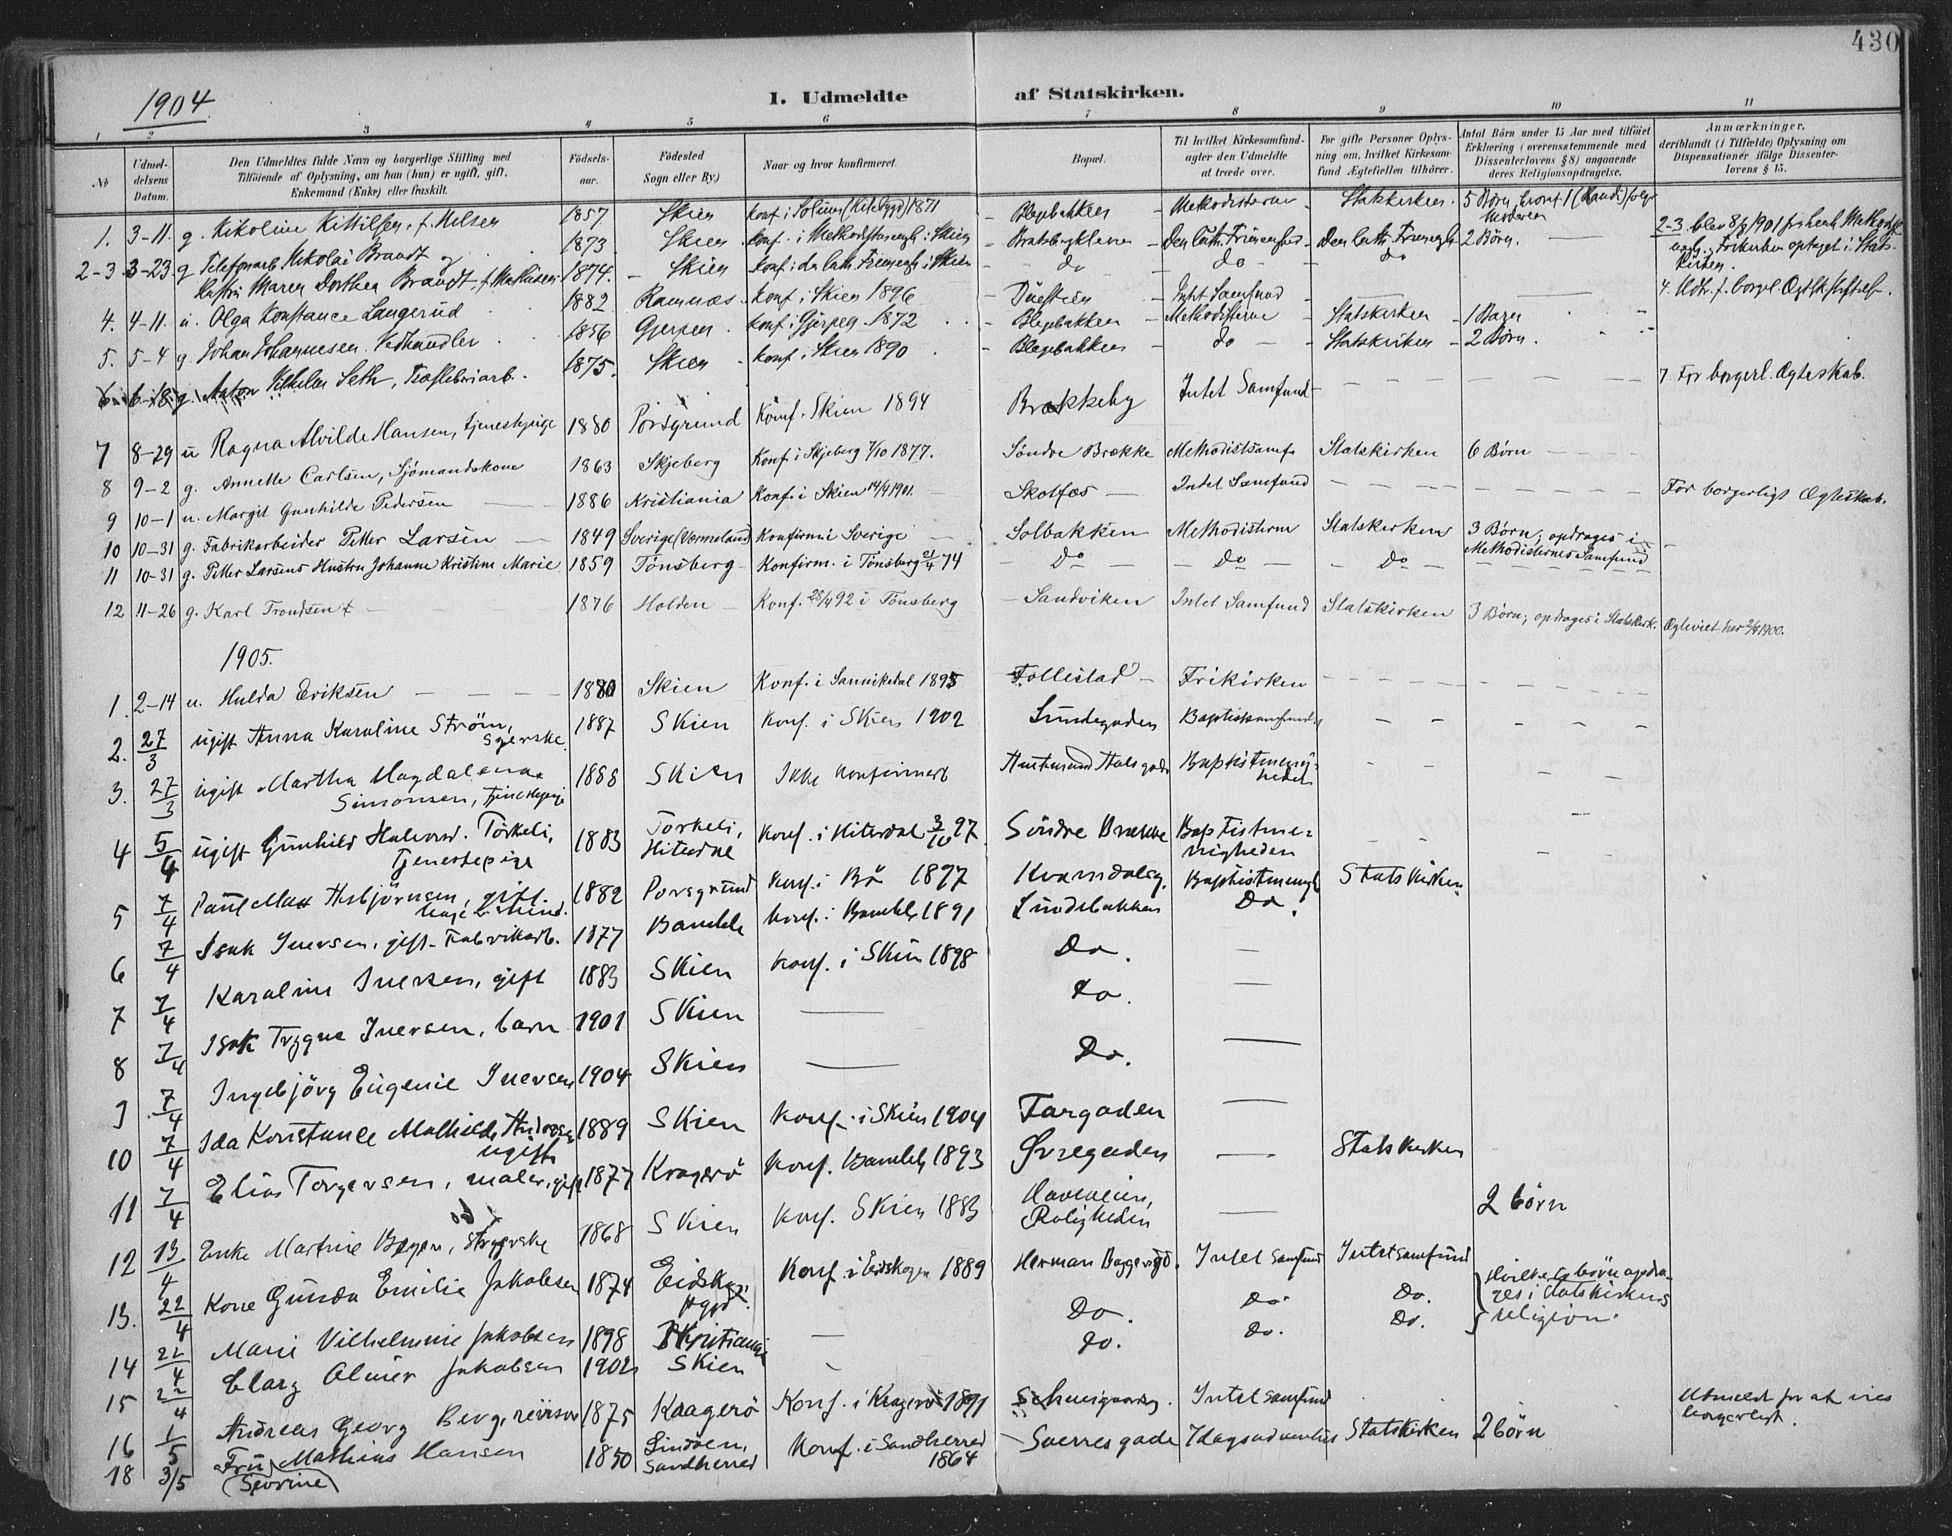 430
1904
I. Udmeldte af Statskirken.
1 2 3 4 5 6 7 8 9 10 11
№ Udmel-delsens Datum. Den Udmeldtes fulde Navn og borgerlige Stilling med Tilföiende af Oplysning, om han (hun) er ugift, gift, Enkemand (Enke) eller fraskilt. Födsels-aar. Födested Sogn eller By.) Naar og hvor konfirmeret. Bopæl. Til hvilket Kirkesamfund agter den Udmeldte at træde over. For gifte Personer Oplys-ning om, hvilket Kirkesam-fund Ægtefællen tilhörer. Antal Börn under 15 Aar med tilföiet Erklæring (overensstemmende med Dissenterlovens § 8) angaaende deres Religionsopdragelse. Anmærkninger, deriblandt (i Tilfælde) Oplysning om Dispensationer ifölge Dissenter-lovens § 15.
1. 3-11. g. Nikoline Kittilsen, f. Nilsen 1857 Skien Konf. i Solum 1871 Blegebakken Methodisterne Statskirken 5 Börn
2-3 3-23 g. Telefonarb. Nikolai Brandt og 1873 Skien Konf. i Methodistmengh. i Skien Bratsbergkleven Den luth. Frimengh. Den luth. Frimengh. 2 Börn.
Hustru Maren Dorthea Brandt, f. Mathisen 1874. Skien Konf. i den luth. Frimengh. i Skien do do do
4. 4-11. u. Olga Konstance Langerud 1882 Ramnæs Konf. i Skien 1896 Intet Samfund 4. Udtr. f. borgerl. Ægteskab
5. 5-4 g. Johan Johannesen Vedhandler 1856 Gjerpen Konf. i Gjerpen 1872 Blegebakken Methodisterne Statskirken 1 Barn
6. 6-18 g. Anton Vilhelm Seth, Træsliberiarb. 1875. Skien Konf. i Skien 1890 Blegebakken do Statskirken 2 Börn.
7 8-29 u Ragna Alvilde Hansen, tjenestepige 1880 Porsgrund Konf. Skien 1894 Brækkeby Intet Samfund 7. For borgerl. Ægteskab.
8 9-2 g. Annette Carlsen, Sjömandskone 1863 Skjeberg Konf. i Skjeberg 7/10 1877. Söndre Brække Methodistsamf. Statskirken 6 Börn
9 10-1 u. Margit Gunhilde Pedersen 1886 Kristiania Konf. i Skien 14/4 1901. Skotfos Intet Samfund For borgerligt Ægteskab.
10 10-31 g. Fabrikarbeider Petter Larsen 1849 Sverige (Vermeland) Konfirm. i Sverige Solbakken Methodisterne Statskirken 3 Börn, opdrages i Methodisternes Samfund
11 10-31 g. Petter Larsens Hustru Johanne Kristine Marie 1859 Tönsberg Konfirm. i Tönsberg 74 Do Do Do
12 11-26 g. Karl Trondsen 1876 Holden Konf. 28/4 92 i Tönsberg Sandviken Intet Samfund Statskirken 3 Börn; opdrages i Statskirk. Ægteviet her 1900.
1905.
1. 2-14 u. Hulda Eriksen 1880 Skien Konf. i Sannikedal 1895 Follestad Frikirken
2. 27/3 ugift Anna Karoline Ström, Syerske 1887 Skien Konf. i Skien 1902 Lundegaden Baptistsamfundet
3. 27/3 ugift Martha Magdalena Simonsen, Tjenestepige 1888 Skien Ikke konfirmert Baptistmenigheden
4 5/4 ugift Gunhild Halvorsd. Torkeli, Tjenestepige 1883 Torkeli, Hiterdal Konf. i Hiterdal 3/10 97. Söndre Brække Baptistmenigheden
5 7/4 Paul Max Asbjörnsen, gift 1882 Porsgrund Konf. i Bö 1897 Kvarndalsg. Baptistmengh. Statskirken
6 7/4 Isak Iversen, gift Fabrikarb. 1877 Bamble Konf. i Bamble 1891 Lundebakken Do.
7 7/4 Karoline Iversen, gift 1883 Skien Konf. i Skien 1898 Do.
8 7/4 Isak Trygve Iversen, barn 1901 Skien do.
9 7/4 Ingebjörg Eugenie Iversen 1904 Skien Do.
10 7/4 Ida Konstance Mathilde Andersen ugift 1889 Skien Konf. i Skien 1904 Torgaden
11 7/4 Elias Torgersen, maler, gift 1877 Kragerö Konf. Bamble 1893 Övregaden Statskirken
12 13/4 Enke Martine, Strygerske 1868 Skien Konf. Skien 1883 Haveveien, Roligheden 2 börn
13. 22/4 Kone Gunda Emilie Jakobsen 1874 Eidskog Konf. i Eidskogen 1889 Herman Baggersgd. Intet samfund Intet samfund Hvilke to börn opdrages i Statskirkens religion.
14 22/4 Marie Vilhelmine Jakobsen 1898 Kristiania Do. Do. Do.
15 22/4 Clary Jakobsen 1902 Skien do. Do. Do.
16 1/5 Andreas Georg Berg, revisor 1875 Kragerö Konf. i Kragerö 1891 Intet samfund Utmeldt for at vies borgerligt.
18 3/5 Fru Mathias Hansen (Severine) 1850 Sandherred Konf. i Sandherred 1864 Sverresgade 7dagsadventis Statskirken 2 börn